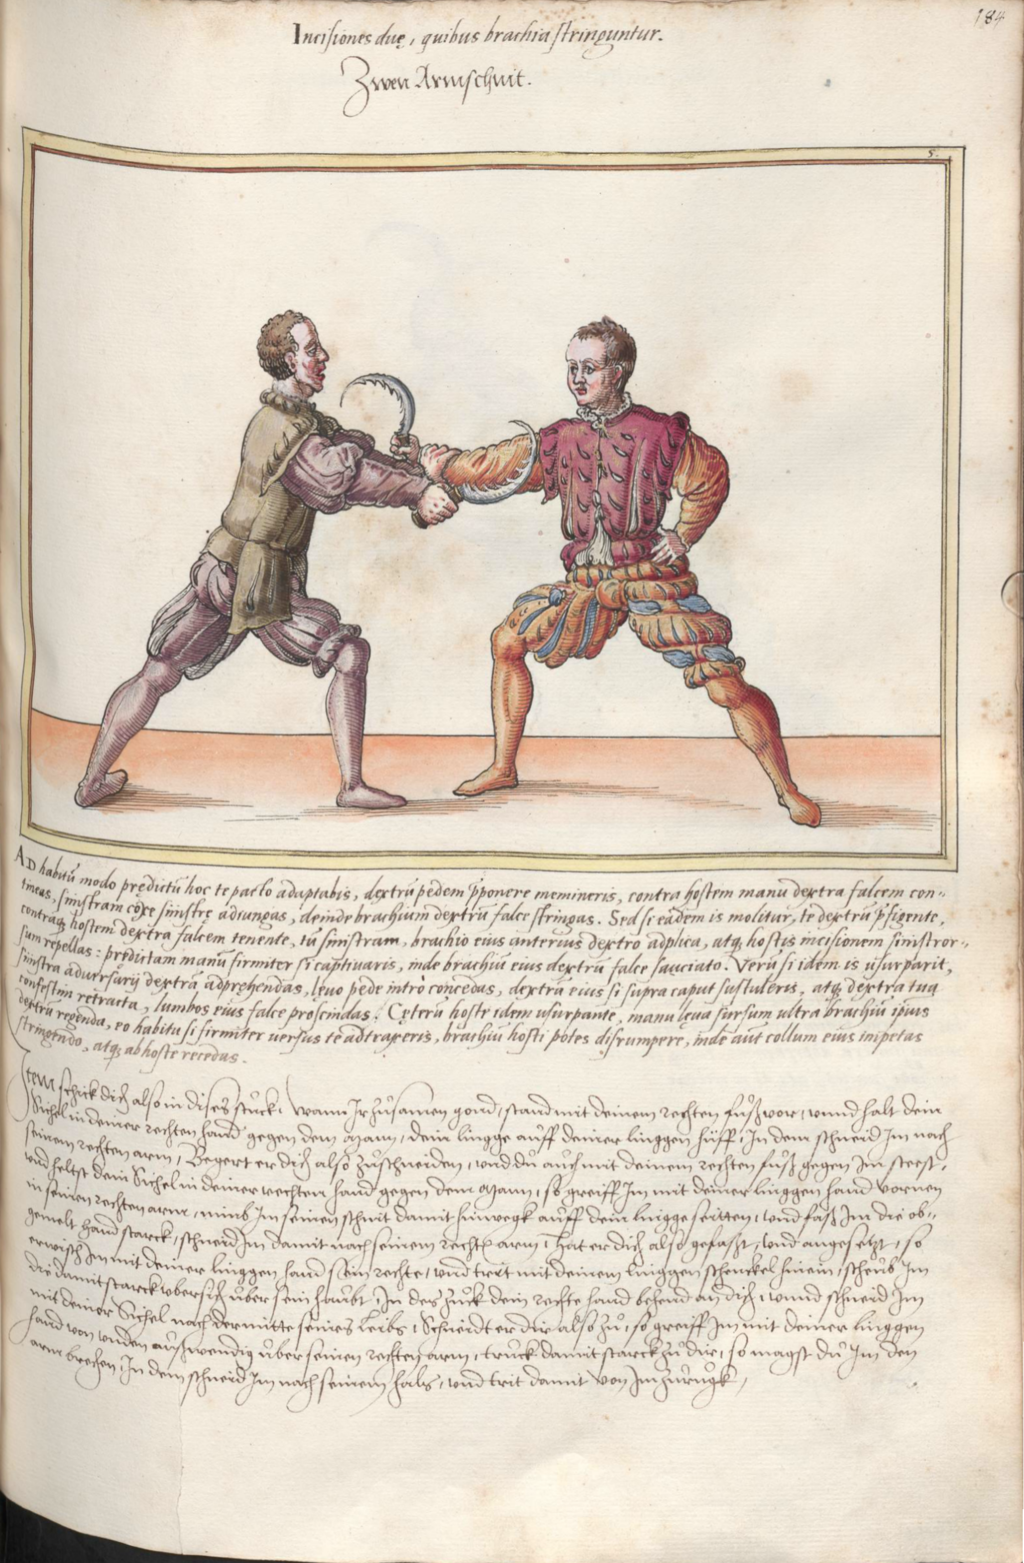 184
Incisiones duę, quibus brachia stringuntur.
Zwen Armschnit.
5.
AD habitū modo prędictū hoc te pacto adaptabis, dextrū pedem p̄ponere memineris, contra hostem manu dextra falcem con-
tineas, sinistram coxe sinistrę adiungas, deinde brachium dextrū falce stringas. Sed si eadem is molitur, te dextrū p̄figente,
contraq̢ hostem dextra falcem tenente, tū sinistram, brachio eius anterius dextro adplica, atq̢ hostis incisionem sinistror-
sum repellas: prędictam manū firmiter si captivaris, inde brachiū eius dextrū falce sauciato. Verū si idem is usurparit,
sinistra adversarij dextrā adprehendas, lęvo pede intro concedas, dextrā eius si supra caput sustuleris, atq̢ dextra tua
confestim retracta, lumbos eius falce proscindas. Cęterū hoste idem usurpante, manu lęva sursum ultra brachiū ipsius
dextrū regenda, eo habitu si firmiter versus te adtraxeris, brachiū hosti potes disrumpere, inde aut collum eius impetas
stringendo, atq̢ ab hoste recedas.
Item schick dich also in dises stuck, Wann Ir zusamen gond, stand mit deinem rechten fuß vor, vnnd halt dein
Sichel in deiner rechten hand gegen dem Mann, dein lingge auff deiner linggen hüff, In dem schneid Im nach
seinem rechten arm, Begert er dich also zuschneiden, vnd du auch mit deinem rechten fuß gegen Im steest,
vnd heltst dein Sichel in deiner rechten hand gegen dem Mann, so greiff Im mit deiner linggen hand vornen
in seinen rechten arm, nimb Im seinen schnit damit hinwegk auff dein lingge seitten, vnd faß Im die ob-
gemelt hand starck, schneid Im damit nach seinem rechtē arm, Hat er dich also gefaßt, vnd angesetzt, so
erwisch Im mit deiner linggen hand sein rechte, vnd trit mit deinem linggen schenckel hinein, scheub Im
die damit starck vbersich über sein haubt In des zuck dein rechte hand behend an dich, vnnd schneid Im
mit deiner Sichel nach der mitte seines leibs, Schneidt er dir also zu, so greiff Im mit deiner linggen
hand von vnden außwendig über seinen rechten arm, truck damit starck zu dir, so magst du Im den
arm brechen, In dem schneid Im nach seinem hals, vnd trit damit von Im zurugk,